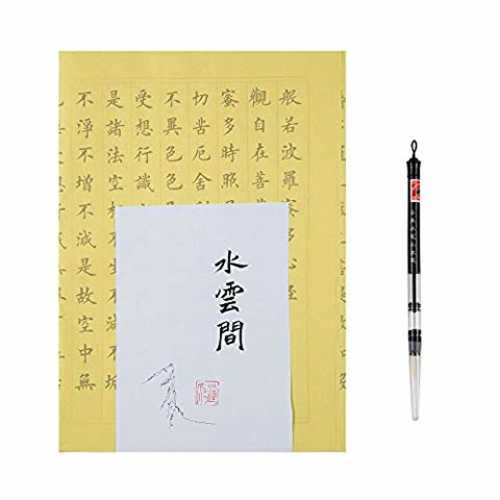 般若波羅蜜多心經
觀自在菩
蜜多時照
切苦厄舍
不異色色
受想行識
是諸法空
不淨不增不減是故空中無
水雲間